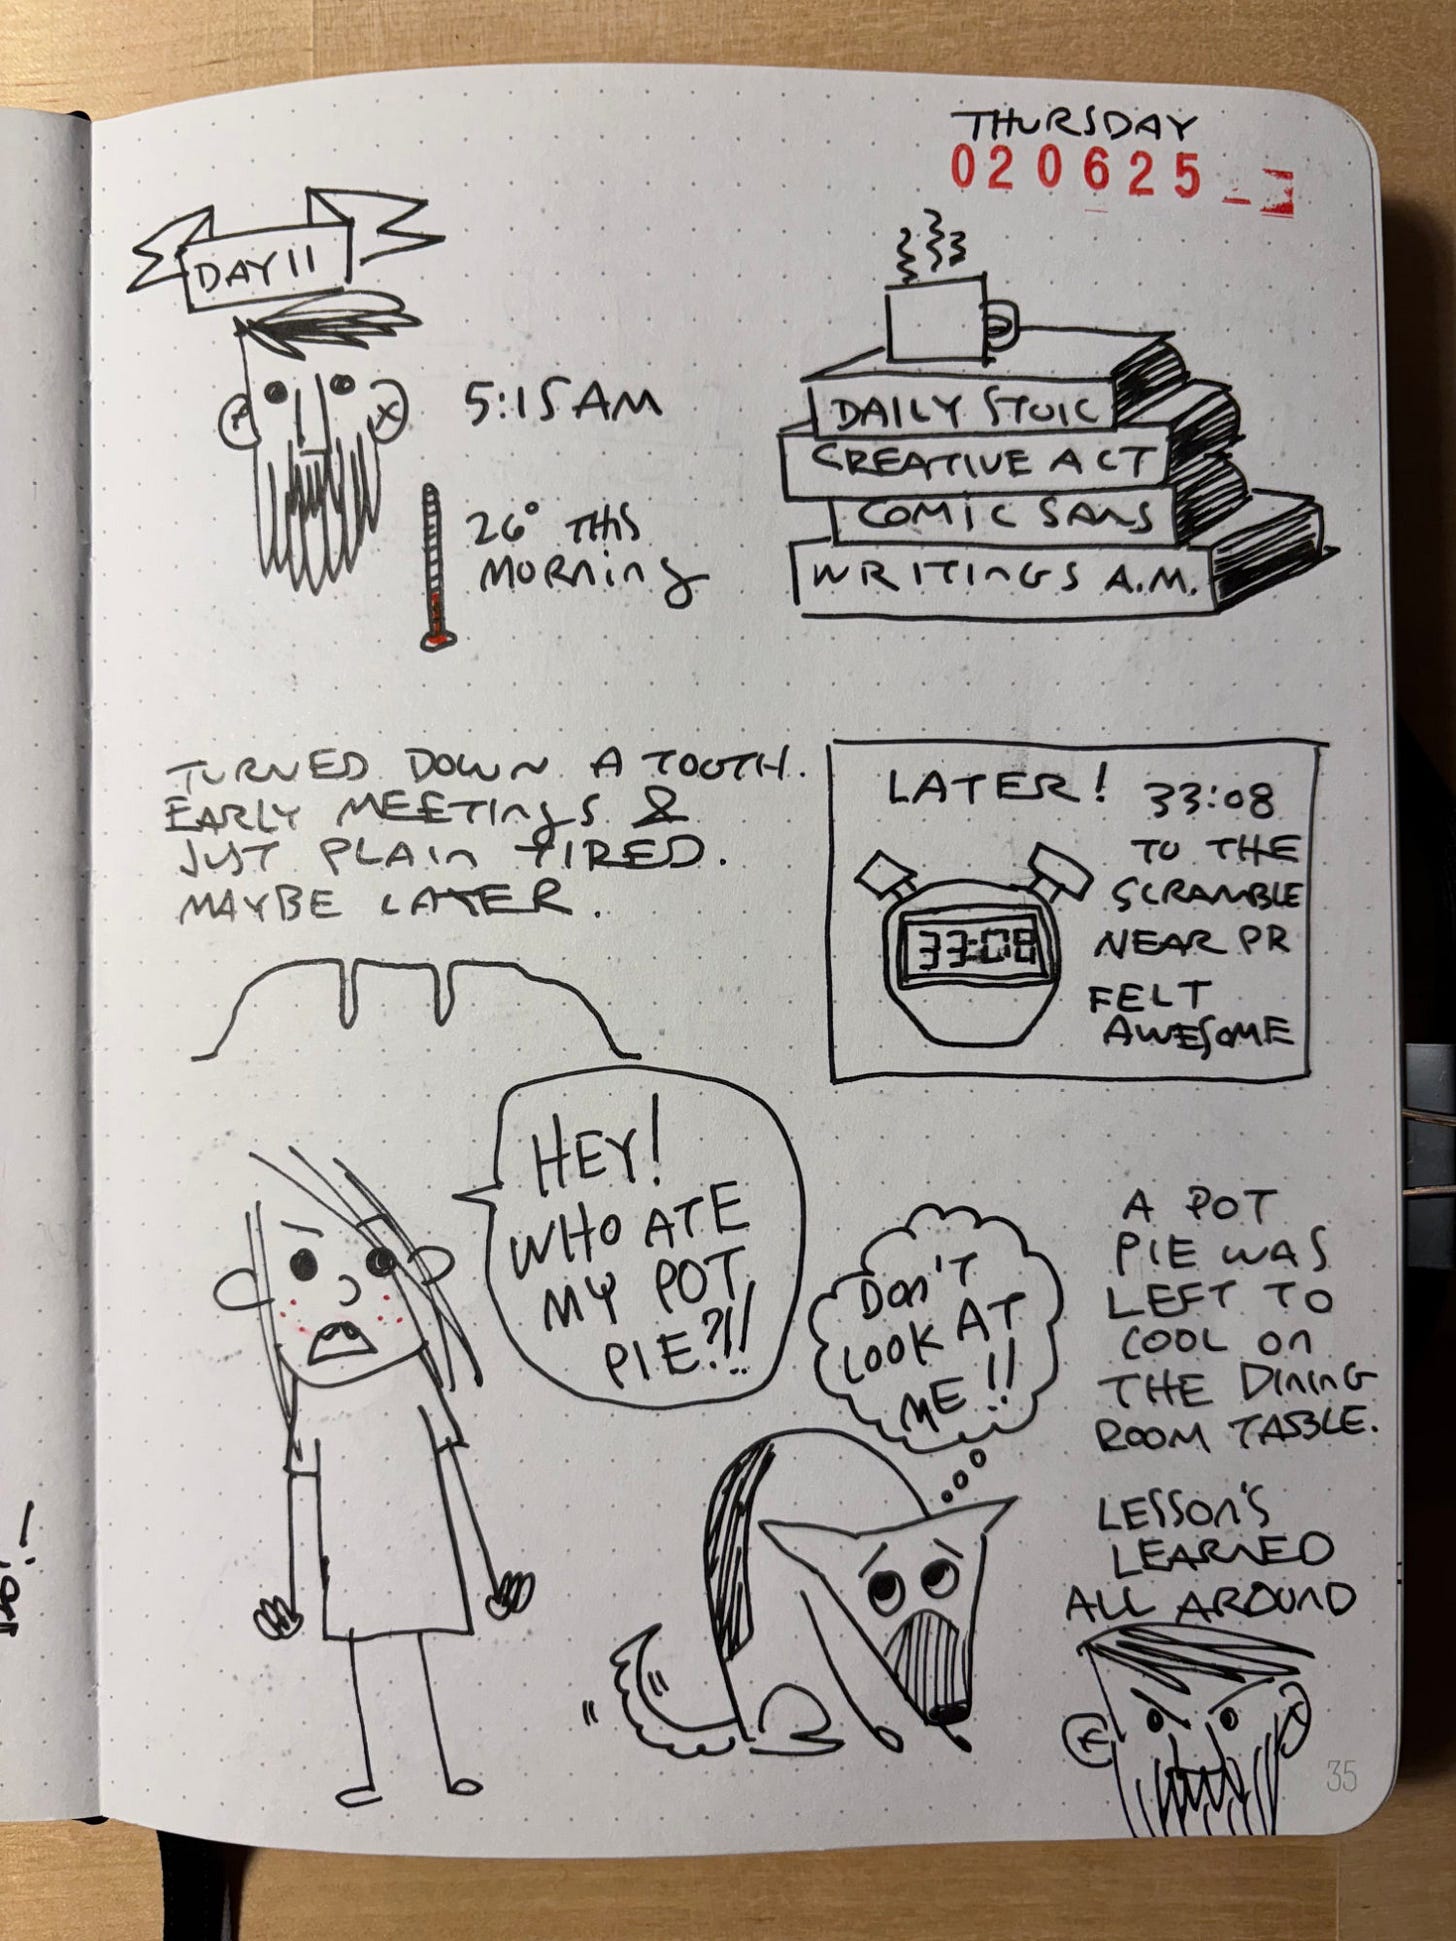 THURSDAY
020625
DAY 11
5:15AM
26° THIS
MORNING
DAILY STOIC
CREATIVE ACT
COMIC SANS
WRITINGS A.M.
TURNED DOWN A TOOTH.
EARLY MEETINGS &
JUST PLAIN TIRED.
MAYBE LATER.
LATER! 33:08
TO THE
SCRAMBLE
NEAR PR
FELT
AWESOME
33:08
HEY!
WHO ATE
MY POT
PIE?!!
DON'T
LOOK AT
ME!!
A POT
PIE WAS
LEFT TO
COOL ON
THE DINING
ROOM TABLE.
LESSON'S
LEARNED
ALL AROUND
35